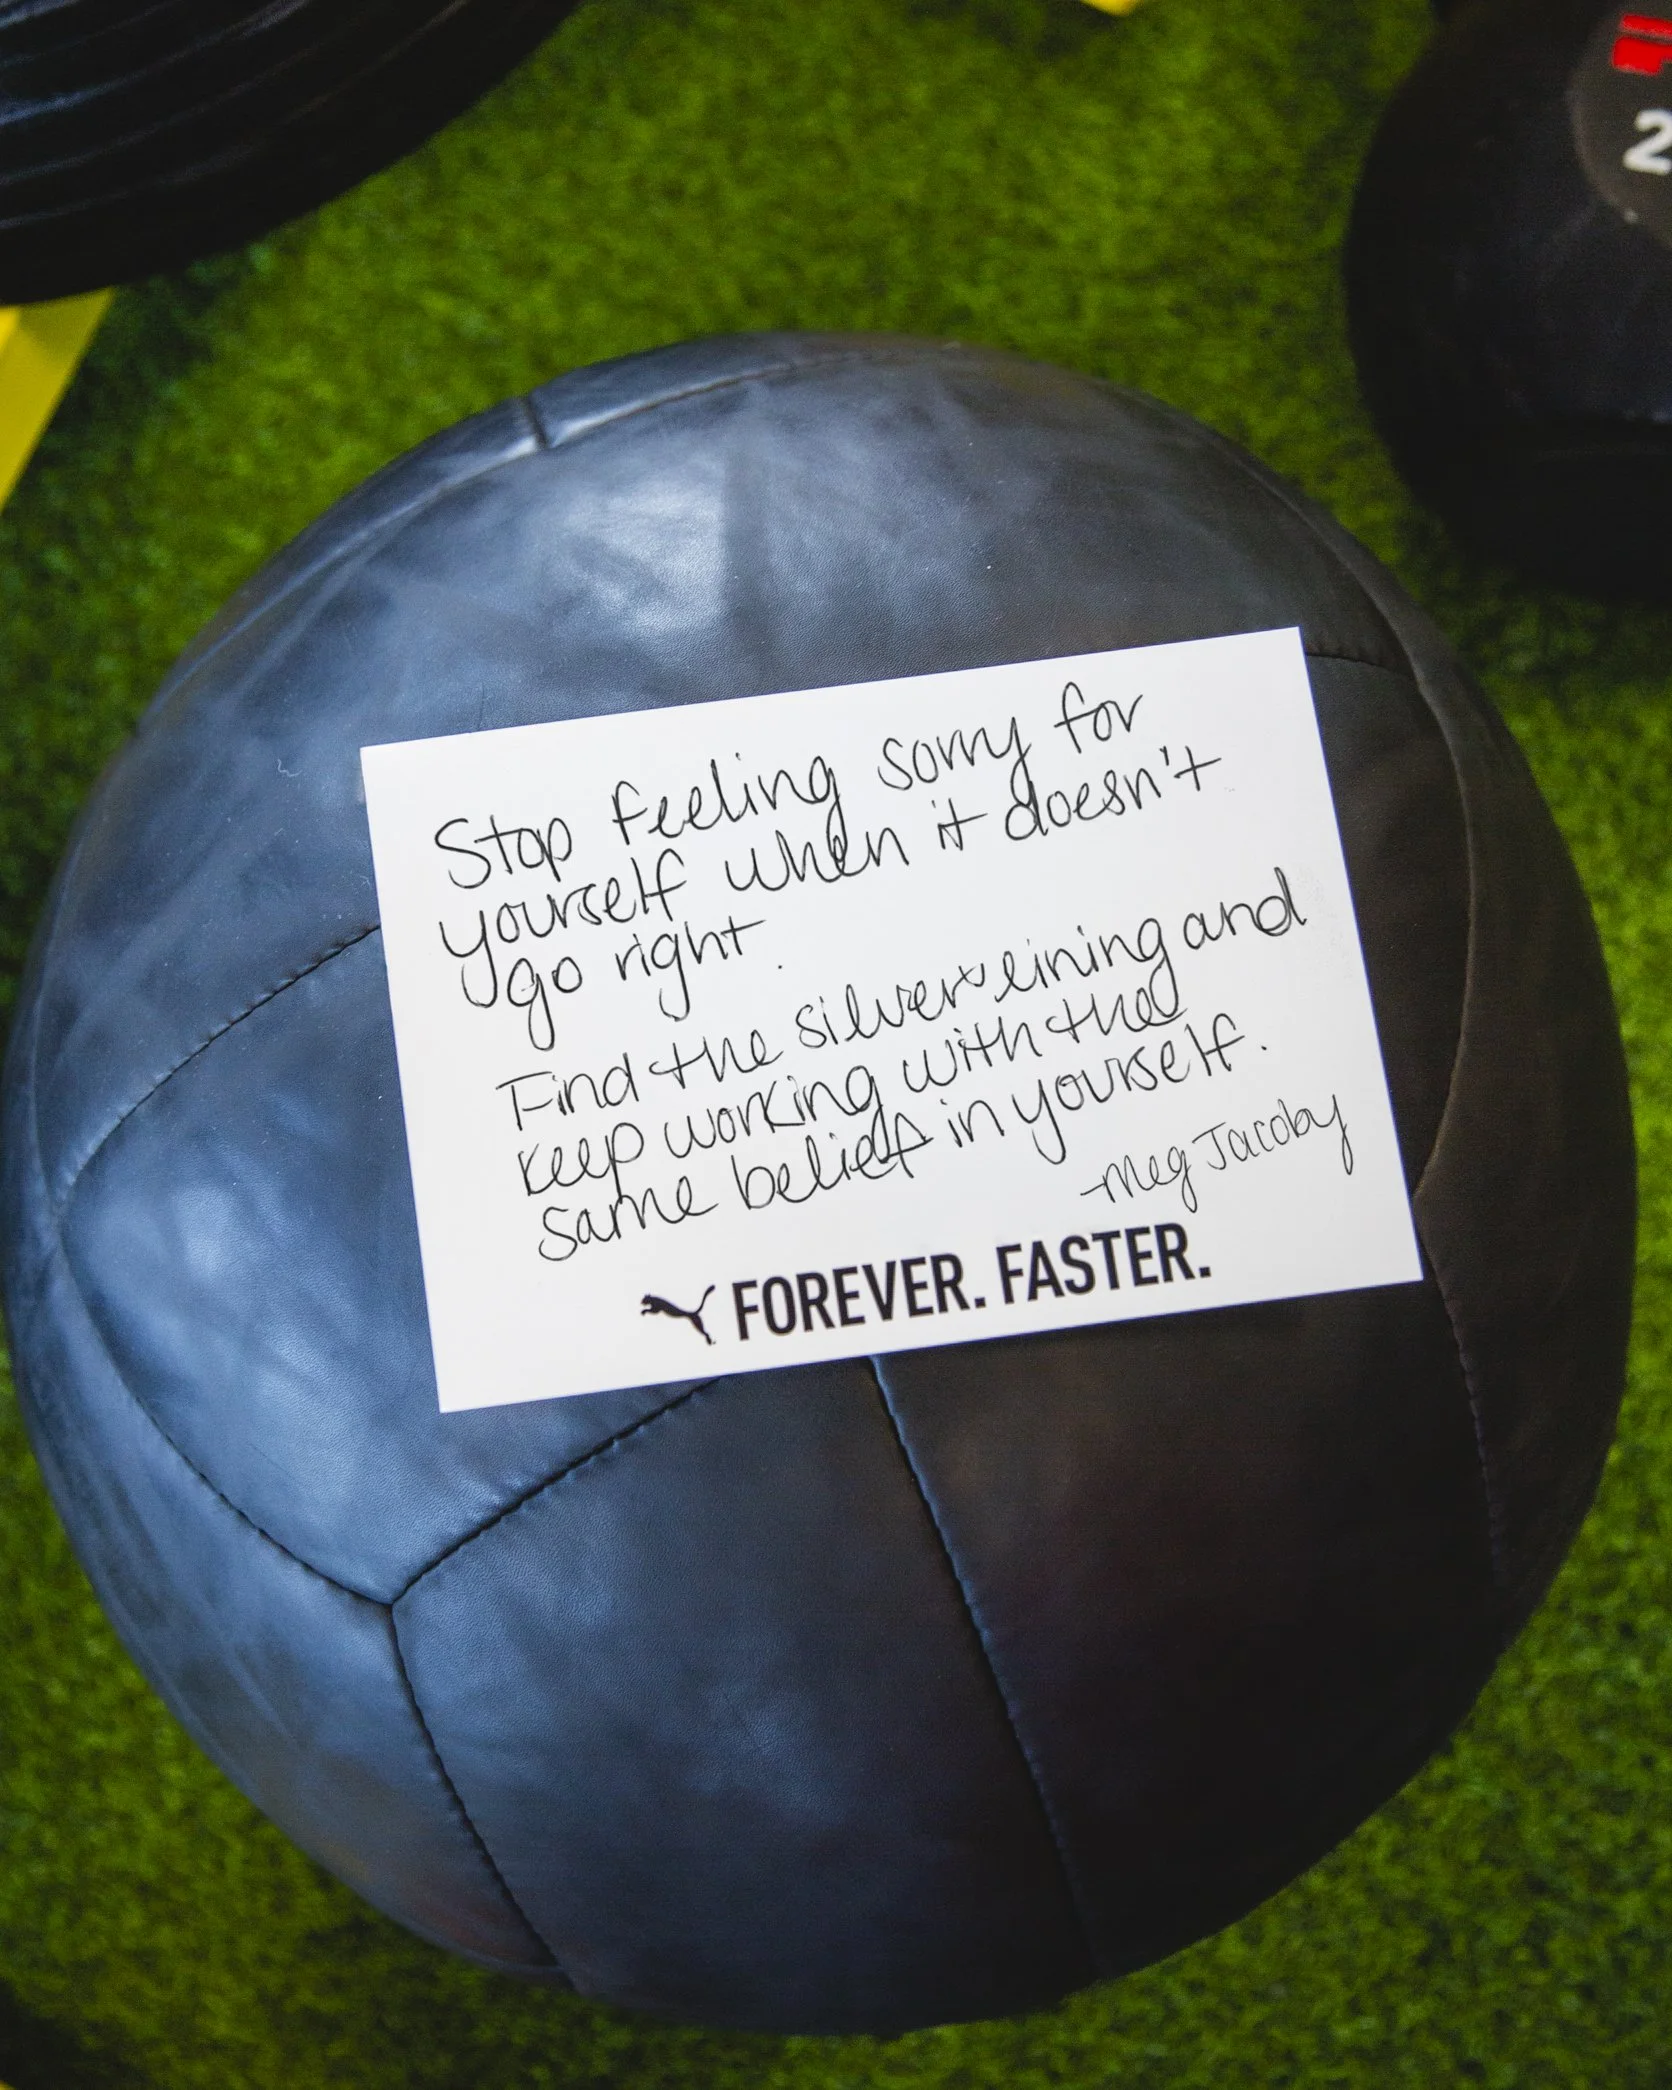 Stop feeling sorry for
yourself when it doesn't
go right.
Find the silver lining and
keep working with the
same belief in yourself.
-Meg Jacoby
FOREVER. FASTER.
2